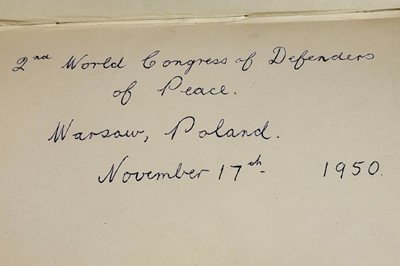 2nd World Congress of Defenders
of Peace.
Warsaw, Poland.
November 17th. 1950.